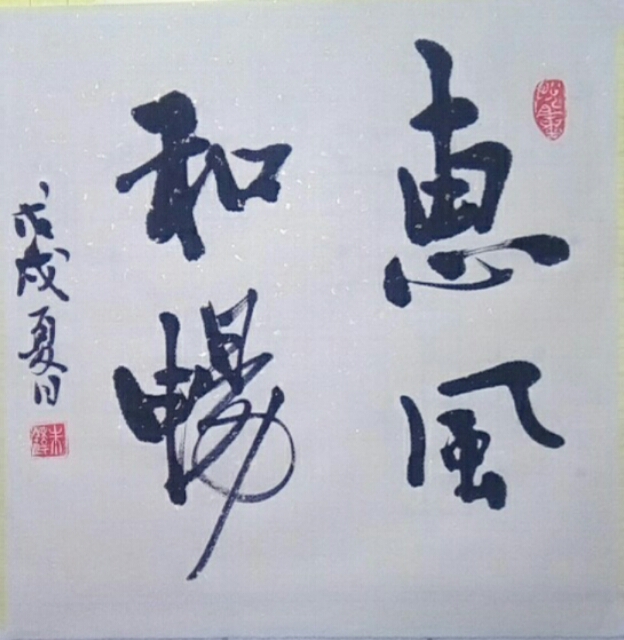 惠風
和暢
戊戌夏日